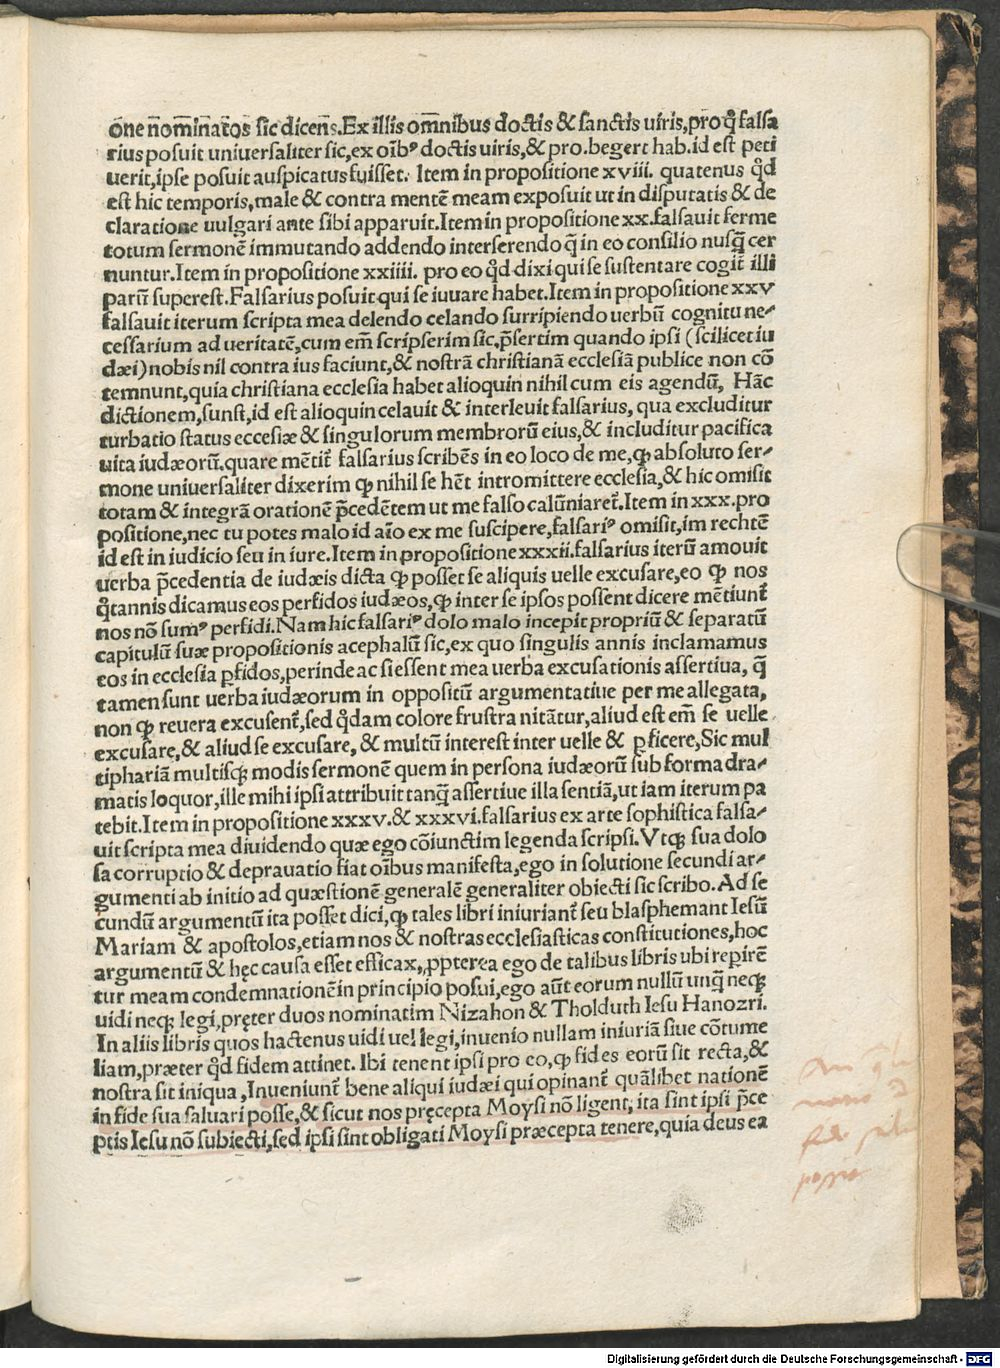 one nom̅inatos sic dicens.Ex illis om̅nibus doctis & sanctis uiris,pro qȝ falsa
rius posuit uniuersaliter sic,ex oībꝰ doctis uiris,& pro.begert hab.id est peti
uerit,ipse posuit auspicatus fuisset. Item in propositione xviii. quatenus qd̄
est hic temporis,male & contra mentē meam exposuit ut in disputatis & de
claratione uulgari ante sibi apparuit.Item in propositione xx.falsauit ferme
totum sermonē immutando addendo interserendo q̄ in eo consilio nusq̄ cer
nuntur.Item in propositione xxiiii. pro eo qd̄ dixi qui se sustentare cogit̄ illi
parū superest.Falsarius posuit qui se iuuare habet.Item in propositione xxv
falsauit iterum scripta mea delendo celando surripiendo uerbū cognitu ne⸗
cessarium ad ueritatē,cum em̄ scripserim sic.p̄sertim quando ipsi (scilicet iu
dæi) nobis nil contra ius faciunt,& nostrā christianā ecclesiā publice non cō
temnunt,quia christiana ecclesia habet alioquin nihil cum eis agendū, Hāc
dictionem,sunst,id est alioquin celauit & interleuit falsarius, qua excluditur
turbatio status eccesiæ & singulorum membrorū eius,& includitur pacifica
uita iudæorū.quare mētit̄ falsarius scribēs in eo loco de me,ꝙ absoluto ser⸗
mone uniuersaliter dixerim ꝙ nihil se hēt intromittere ecclesia,& hic omisit
totam & integrā orationē p̄cedētem ut me falso calūniaret̄.Item in xxx.pro
positione,nec tu potes malo id aīo ex me suscipere,falsariꝰ omisit,im rechtē
id est in iudicio seu in iure.Item in propositione xxxii.falsarius iterū amouit
uerba p̄cedentia de iudæis dicta ꝙ posset se aliquis uelle excusare,eo ꝙ nos
q̄tannis dicamus eos perfidos iudæos,ꝙ inter se ipsos possent dicere mētiunt̄
nos nō sumꝰ perfidi.Nam hic falsariꝰ dolo malo incepit propriū & separatū
capitulū suæ propositionis acephalū sic,ex quo singulis annis inclamamus
eos in ecclesia ꝑfidos,perinde ac si essent mea uerba excusationis assertiua, q̄
tamen sunt uerba iudæorum in oppositū argumentatiue per me allegata,
non ꝙ reuera excusent̄,sed qd̄am colore frustra nitātur,aliud est em̄ se uelle
excusare,& aliud se excusare, & multū interest inter uelle & ꝑficere,Sic mul
tiphariā multisqꝫ modis sermonē quem in persona iudæorū sub forma dra⸗
matis loquor,ille mihi ipsi attribuit tanq̄ assertiue illa sentiā,ut iam iterum pa
tebit.Item in propositione xxxv.& xxxvi.falsarius ex arte sophistica falsa⸗
uit scripta mea diuidendo quæ ego cōiunctim legenda scripsi.Vtqꝫ sua dolo
sa corruptio & deprauatio fiat oībus manifesta,ego in solutione secundi ar⸗
gumenti ab initio ad quæstionē generalē generaliter obiecti sic scribo.Ad se
cundū argumentū ita posset dici,ꝙ tales libri iniuriant̄ seu blasphemant Iesū
Mariam & apostolos,etiam nos & nostras ecclesiasticas constitutiones,hoc
argumentū & hęc causa esset efficax,ꝓpterea ego de talibus libris ubi repirē
tur meam condemnationē in principio posui,ego aūt eorum nullū unq̄ neqꝫ
uidi neqꝫ legi,pręter duos nominatim Nizahon & Tholduth Iesu Hanozri.
In aliis libris quos hactenus uidi uel legi,inuenio nullam iniuriā siue cōtume
liam,præter qd̄ fidem attinet. Ibi tenent ipsi pro eo,ꝙ fides eorū sit recta,&
nostra sit iniqua,Inueniunt̄ bene aliqui iudæi qui opinant̄ quālibet nationē
in fide sua saluari posse,& sicut nos pręcepta Moysi nō ligent, ita sint ipsi p̄ce
ptis Iesu nō subiecti,sed ipsi sint obligati Moysi præcepta tenere,quia deus ea
Digitalisierung gefördert durch die Deutsche Forschungsgemeinschaft - DFG